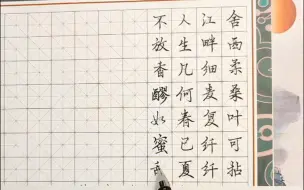 舍西柔桑叶可拈
江畔细麦复纤纤
人生几何春已夏
不放香醪如蜜